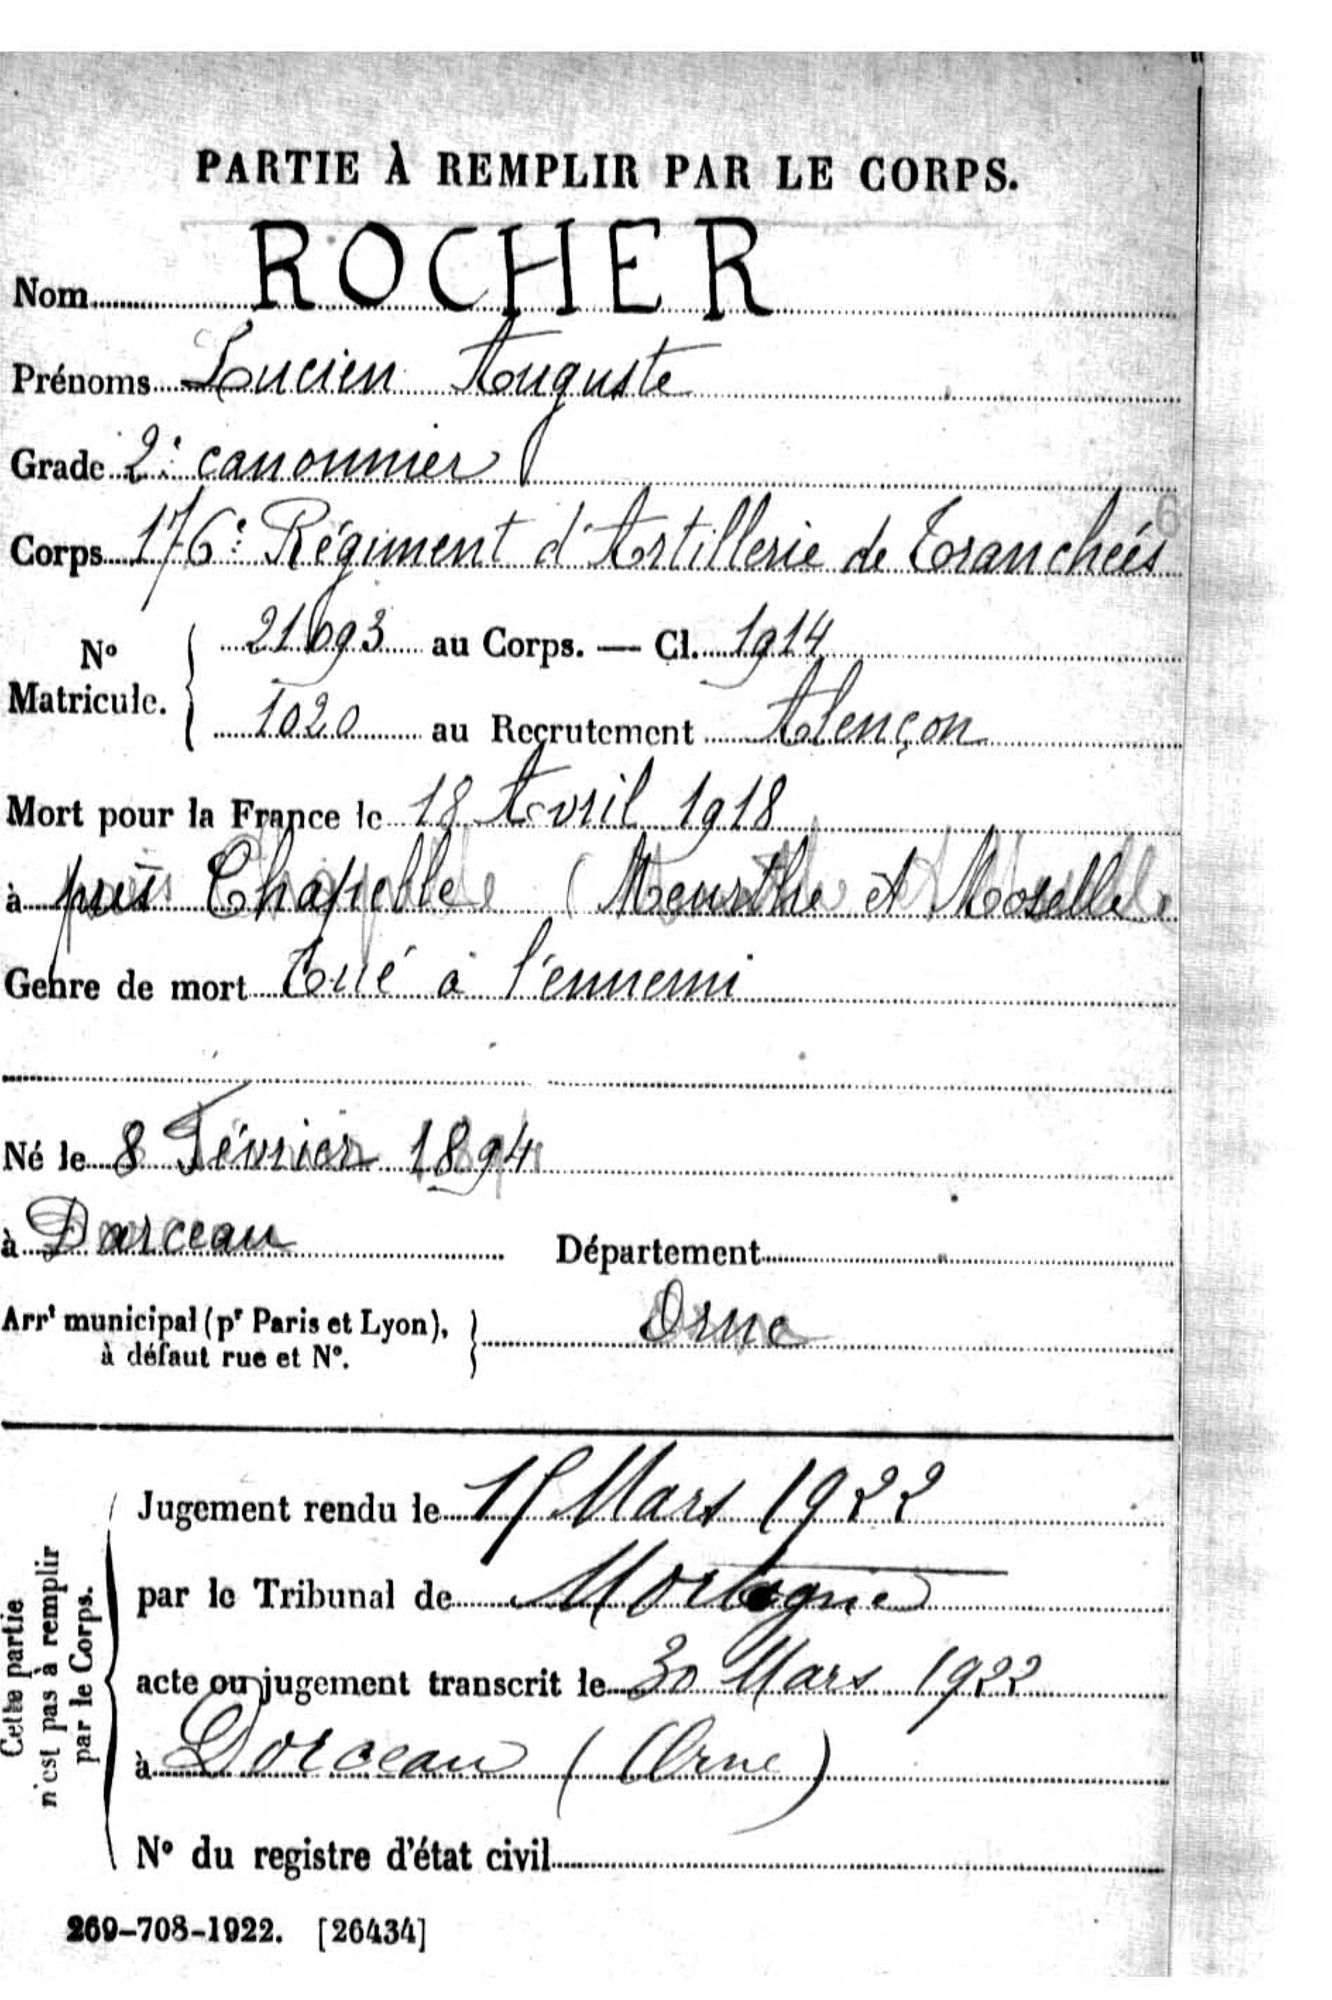 PARTIE À REMPLIR PAR LE CORPS.
Nom ROCHER
Prénoms Lucien Auguste
Grade 2e canonnier
Corps 176e Régiment d'Artillerie de Tranchées
No Matricule. 21693 au Corps. — Cl. 1914
1020 au Recrutement Alençon
Mort pour la France le 18 Avril 1918
à près Chapelle (Meurthe et Moselle
Genre de mort Tué à l'ennemi
Né le 8 Février 1894
à Darceau Département
Arrt municipal (pr Paris et Lyon), à défaut rue et No. Orne
Cette partie n'est pas à remplir par le Corps.
Jugement rendu le 15 Mars 1922
par le Tribunal de Mortagne
acte ou jugement transcrit le 30 Mars 1922
à Dorceau (Orne)
No du registre d'état civil
269-708-1922. [26434]